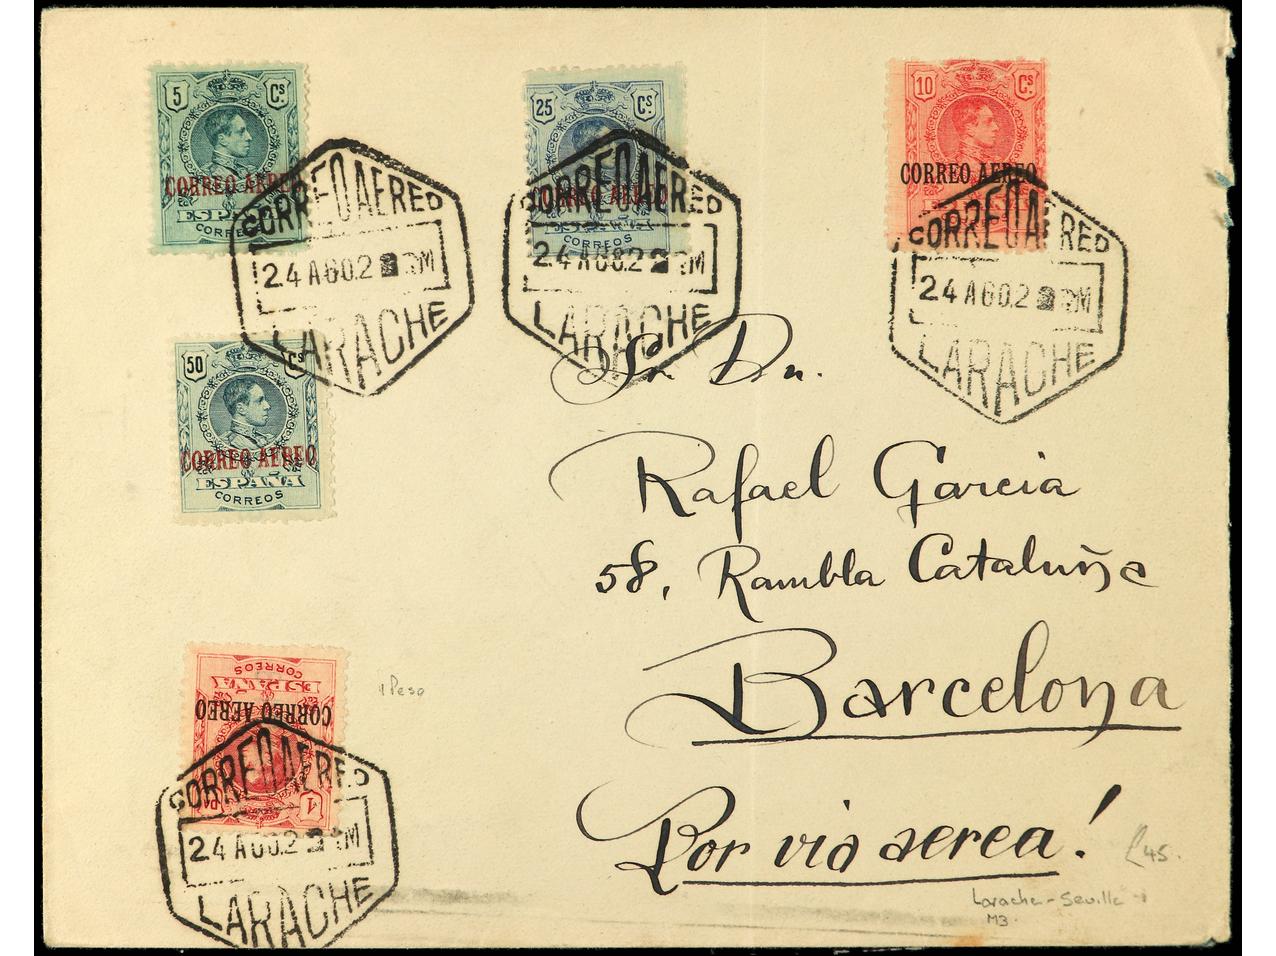 5 Cs
CORREO AEREO
ESPAÑA
CORREOS
25 Cs
CORREO AEREO
ESPAÑA
CORREOS
10 Cs
CORREO AEREO
CORREO AEREO
24 AGO.2
LARACHE
CORREO AEREO
24 AGO.2
LARACHE
CORREO AEREO
24 AGO.2
LARACHE
50 Cs
CORREO AEREO
ESPAÑA
CORREOS
Sr. Dn.
Rafael Garcia
58, Rambla Cataluña
Barcelona
Por via aerea!
CORREOS
ESPAÑA
CORREO AEREO
1 Pta
1 Peso
CORREO AEREO
24 AGO.2
LARACHE
£45.
Larache - Sevilla
M3.